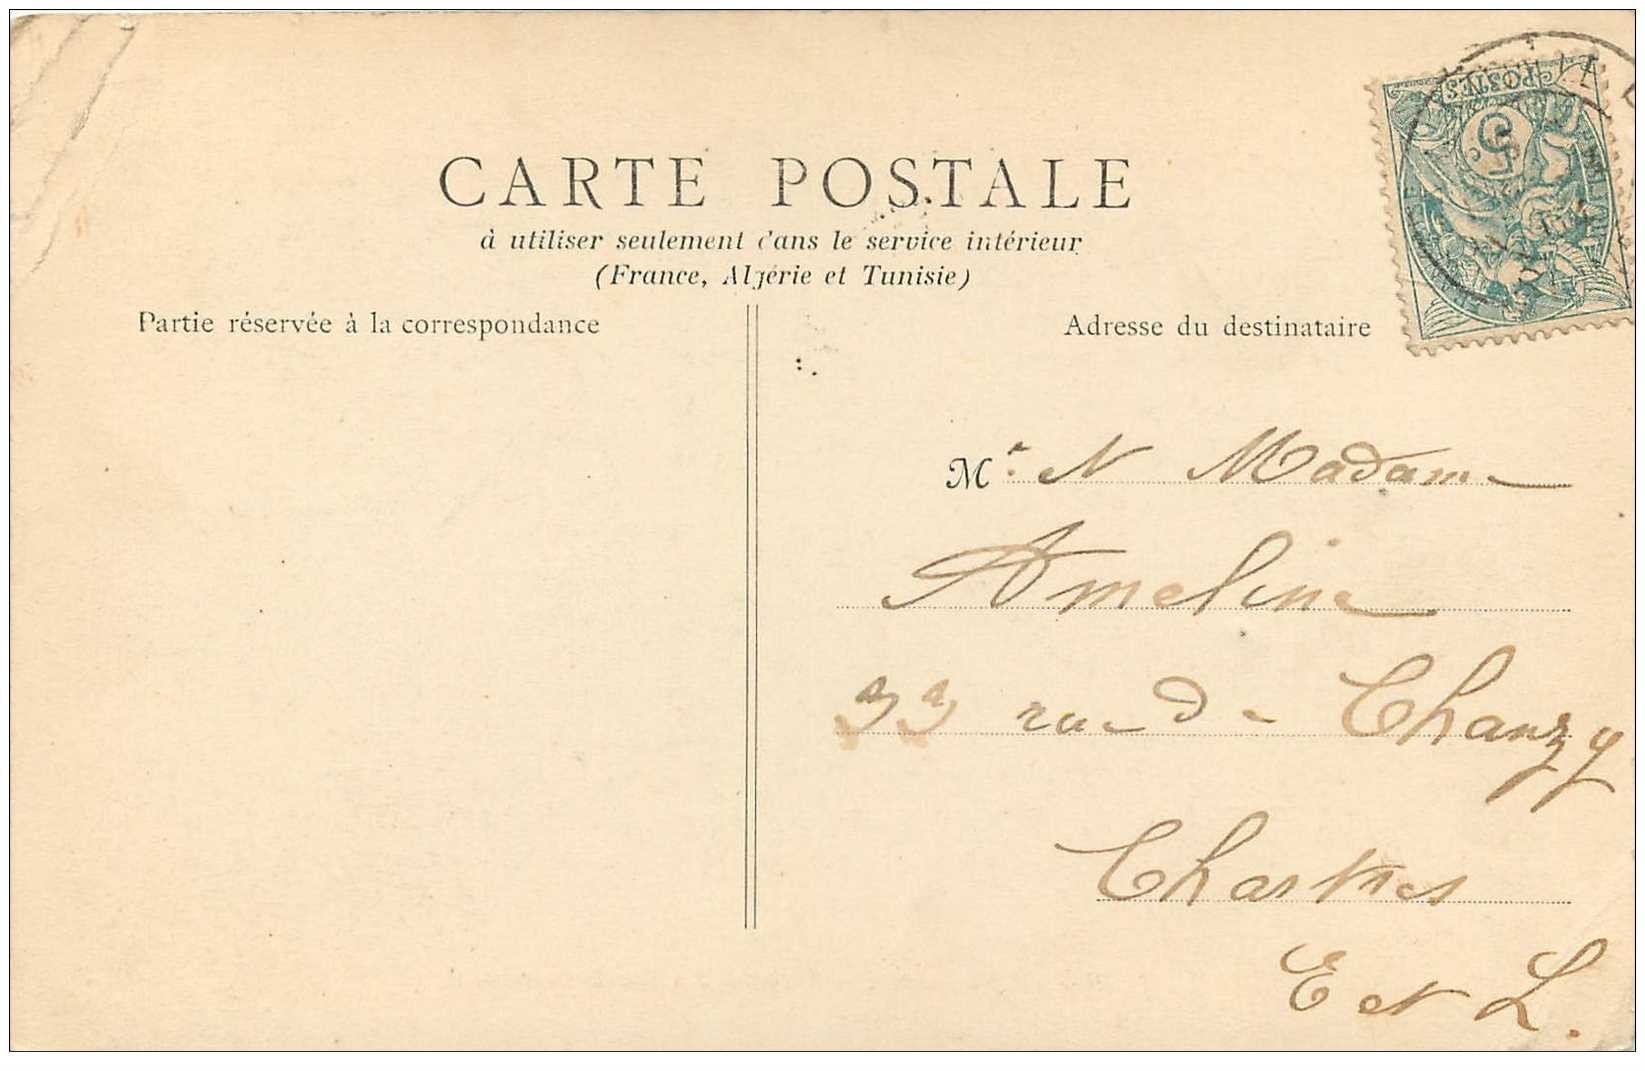 CARTE POSTALE
à utiliser seulement dans le service intérieur
(France, Algérie et Tunisie)
Partie réservée à la correspondance
Adresse du destinataire
POSTES
5
Mr. et Madame
Ameline
33 rue de Chanzy
Chartres
E et L.